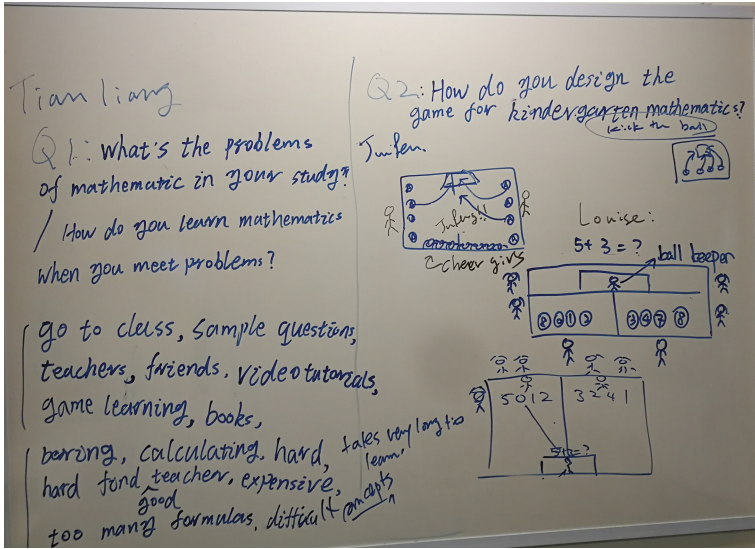 Tian liang
Q1: What's the problems
of mathematic in your study?
/ How do you learn mathematics
when you meet problems?
go to class, sample questions,
teachers, friends. video tutorials,
game learning, books,
boring, calculating. hard, takes very long to
learn.
hard find good teacher. expensive,
too many formulas, difficult concepts
Q2: How do you design the
game for kindergarten mathematics?
kick the ball
Junfen.
Junfeng!!
cheer girls
Louise:
5+3=?
ball beeper
8 6 1 3
3 4 7 8
5012
3241
5+3=?